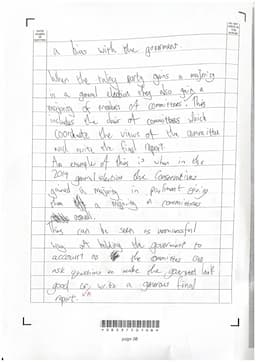 a bias with the government.
When the ruling party gains a majority
in a general election they also gain a
majority of members of committees. This
includes the chair of committees which
coordinate the views of the committee
and write the final report.
An example of this is when in the
2019 general election the conservatives
gained a majority in parliament giving
them a majority in committees
This can be seen as
way of holding the government to
account as the committee can
ask questions to make the government look
good or write a generous final
report.
page 08